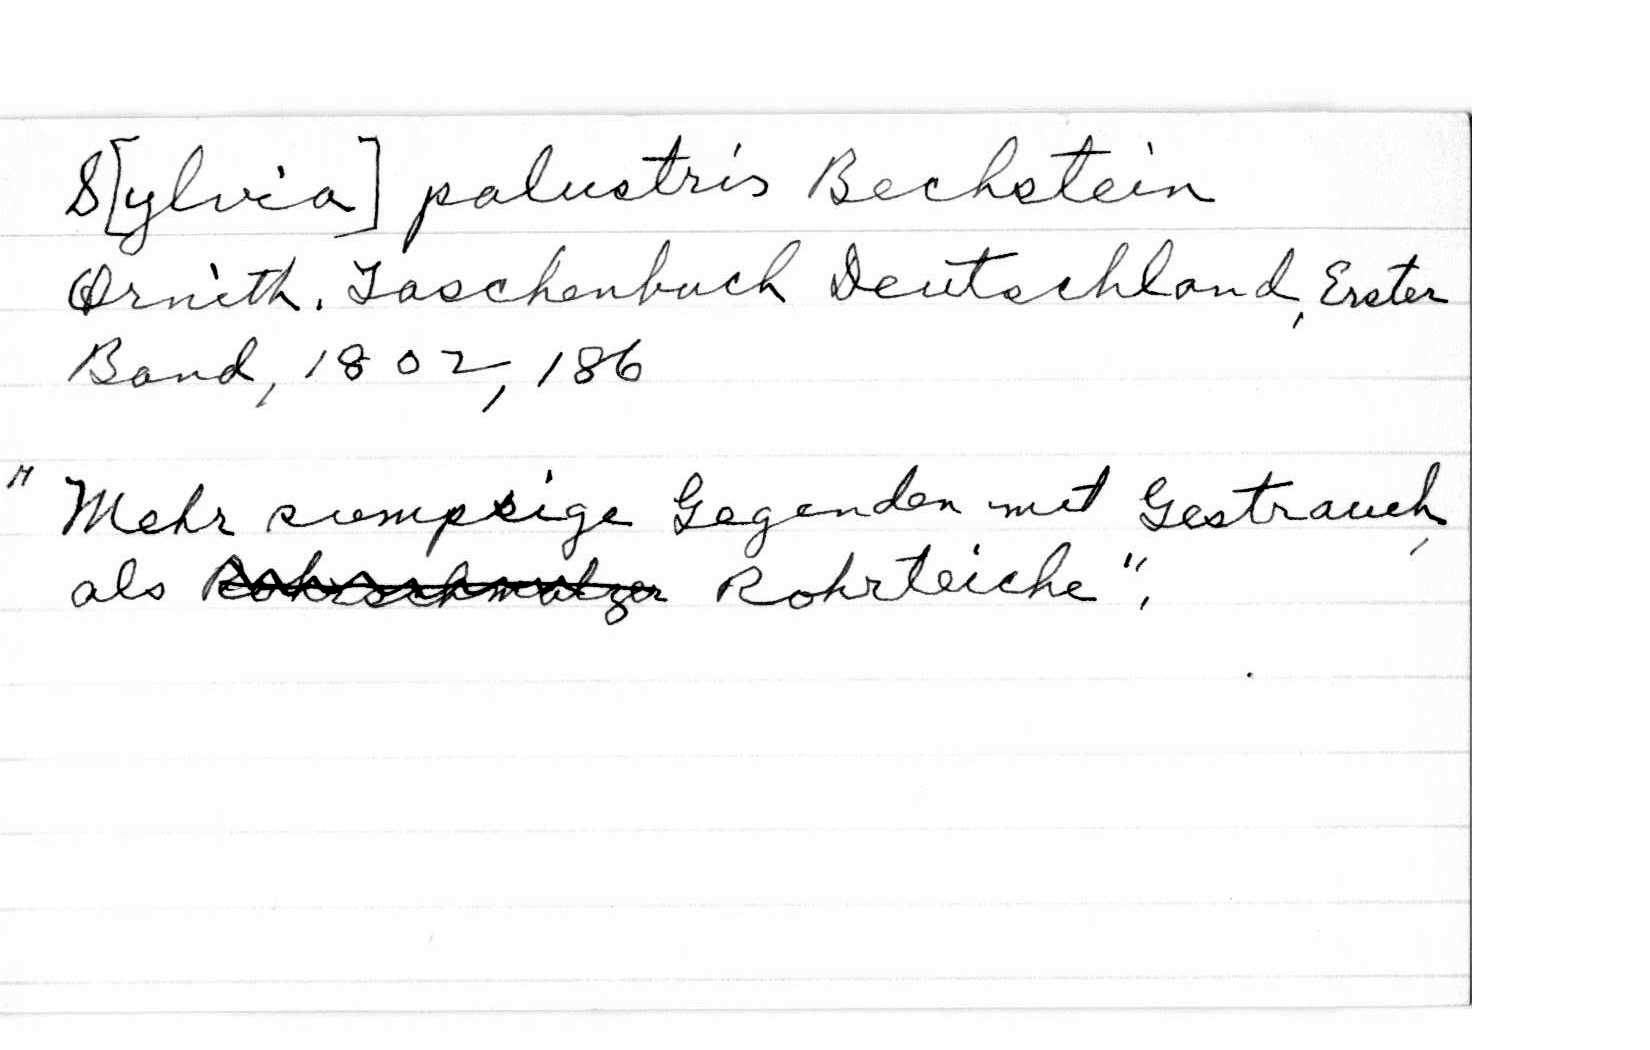 S[ylvia] palustris Bechstein
Ornith. Taschenbuch Deutschland, Erster
Band, 1802, 186
"Mehr sumpsige Gegenden mit Gestrauch,
als Rohrteiche".